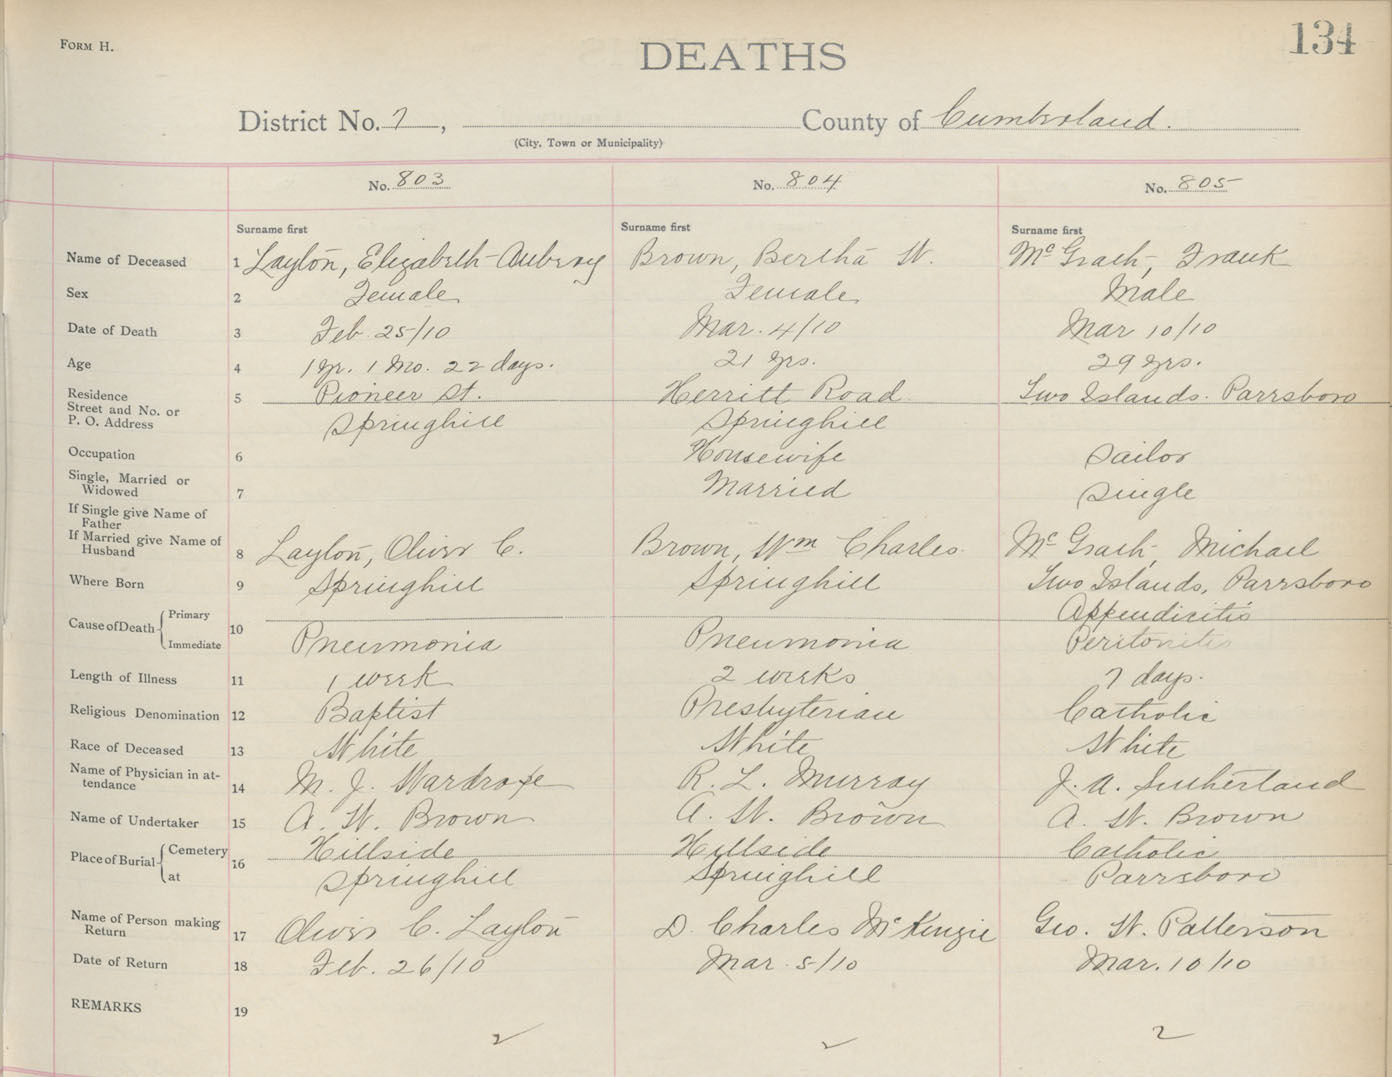 FORM H.
134
DEATHS
District No. 7, County of Cumberland.
(City, Town or Municipality)
No. 803 No. 804 No. 805
Surname first Surname first Surname first
Name of Deceased 1 Laylon, Elizabeth Aubrey Brown, Bertha W. McGrath, Frank
Sex 2 Female Female Male
Date of Death 3 Feb. 25/10 Mar. 4/10 Mar 10/10
Age 4 1 yr. 1 Mo. 22 days. 21 yrs. 29 yrs.
Residence 5 Pioneer St. Herritt Road Two Islands. Parrsboro
Street and No. or
P. O. Address Springhill Springhill
Occupation 6 Housewife Sailor
Single, Married or
Widowed 7 Married Single
If Single give Name of
Father
If Married give Name of
Husband 8 Laylon, Oliver C. Brown, Wm Charles. McGrath, Michael
Where Born 9 Springhill Springhill Two Islands, Parrsboro
Cause of Death Primary 10 Appendicitis
Immediate Pneumonia Pneumonia Peritonitis
Length of Illness 11 1 week 2 weeks 7 days.
Religious Denomination 12 Baptist Presbyterian Catholic
Race of Deceased 13 White White White
Name of Physician in at-
tendance 14 M. J. Wardrope R. L. Murray J. A. Sutherland
Name of Undertaker 15 A. W. Brown A. W. Brown A. W. Brown
Place of Burial Cemetery 16 Hillside Hillside Catholic
at Springhill Springhill Parrsboro
Name of Person making
Return 17 Oliver C. Laylon D. Charles McKenzie Geo. W. Patterson
Date of Return 18 Feb. 26/10 Mar. 5/10 Mar. 10/10
REMARKS 19
2 2 2